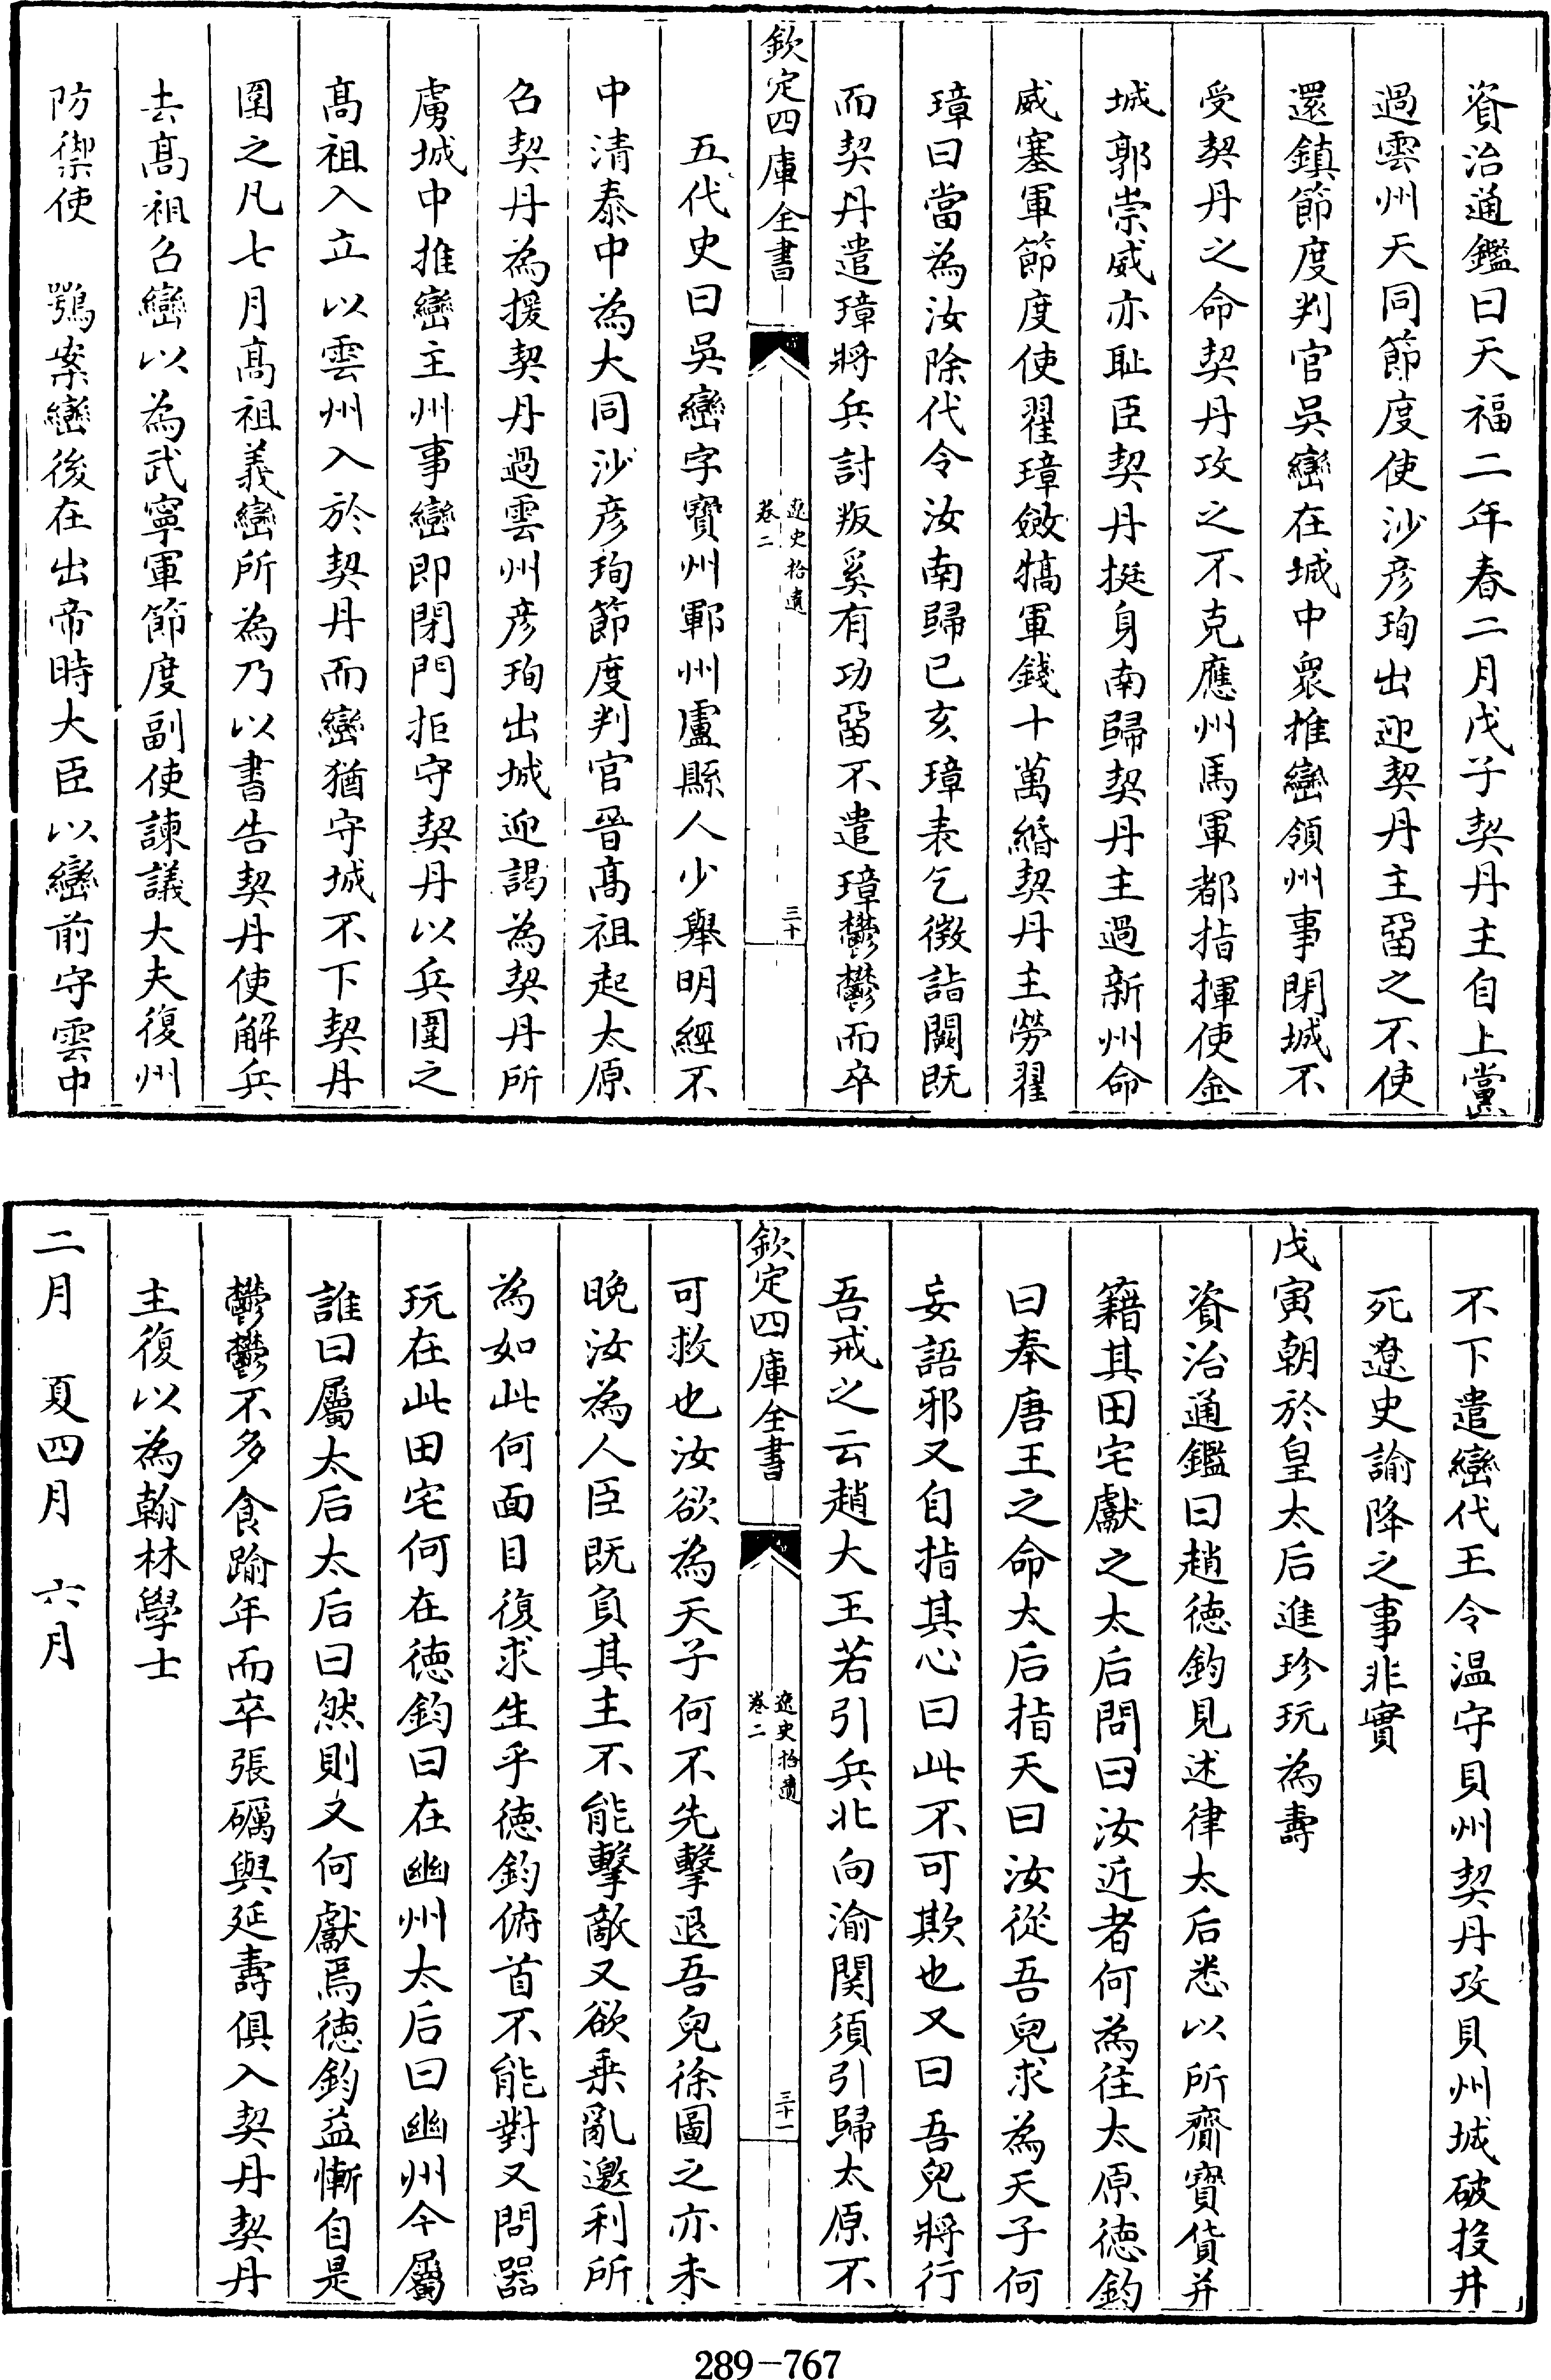 資治通鑑曰天福二年春二月戊子契丹主自上黨
過雲州天同節度使沙彦珣出迎契丹主畱之不使
還鎮節度判官吳巒在城中衆推巒領州事閉城不
受契丹之命契丹攻之不克應州馬軍都指揮使金
城郭崇威亦恥臣契丹挺身南歸契丹主過新州命
威塞軍節度使翟璋斂犒軍錢十萬緡契丹主勞翟
璋曰當為汝除代令汝南歸已亥璋表乞徴詣闕既
而契丹遣璋將兵討叛奚有功畱不遣璋鬱鬱而卒
欽定四庫全書
遼史拾遺
卷二
三十
五代史曰吳巒字寶州鄆州盧縣人少舉明經不
中清泰中為大同沙彦珣節度判官晉髙祖起太原
召契丹為援契丹過雲州彦珣出城迎謁為契丹所
虜城中推巒主州事巒即閉門拒守契丹以兵圍之
髙祖入立以雲州入於契丹而巒猶守城不下契丹
圍之凡七月髙祖義巒所為乃以書告契丹使解兵
去髙祖召巒以為武寧軍節度副使諫議大夫復州
防禦使　鶚案巒後在出帝時大臣以巒前守雲中
不下遣巒代王令温守貝州契丹攻貝州城破投井
死遼史諭降之事非實
戊寅朝於皇太后進珍玩為壽
資治通鑑曰趙徳鈞見述律太后悉以所齎寶貨并
籍其田宅獻之太后問曰汝近者何為往太原徳鈞
曰奉唐王之命太后指天曰汝從吾兒求為天子何
妄語邪又自指其心曰此不可欺也又曰吾兒將行
吾戒之云趙大王若引兵北向渝関須引歸太原不
欽定四庫全書
遼史拾遺
卷二
三十一
可救也汝欲為天子何不先擊退吾兒徐圖之亦未
晩汝為人臣既負其主不能擊敵又欲乗亂邀利所
為如此何面目復求生乎徳鈞俯首不能對又問器
玩在此田宅何在徳鈞曰在幽州太后曰幽州今屬
誰曰屬太后太后曰然則又何獻焉徳鈞益慚自是
鬱鬱不多食踰年而卒張礪與延壽俱入契丹契丹
主復以為翰林學士
二月　夏四月　六月
289-767